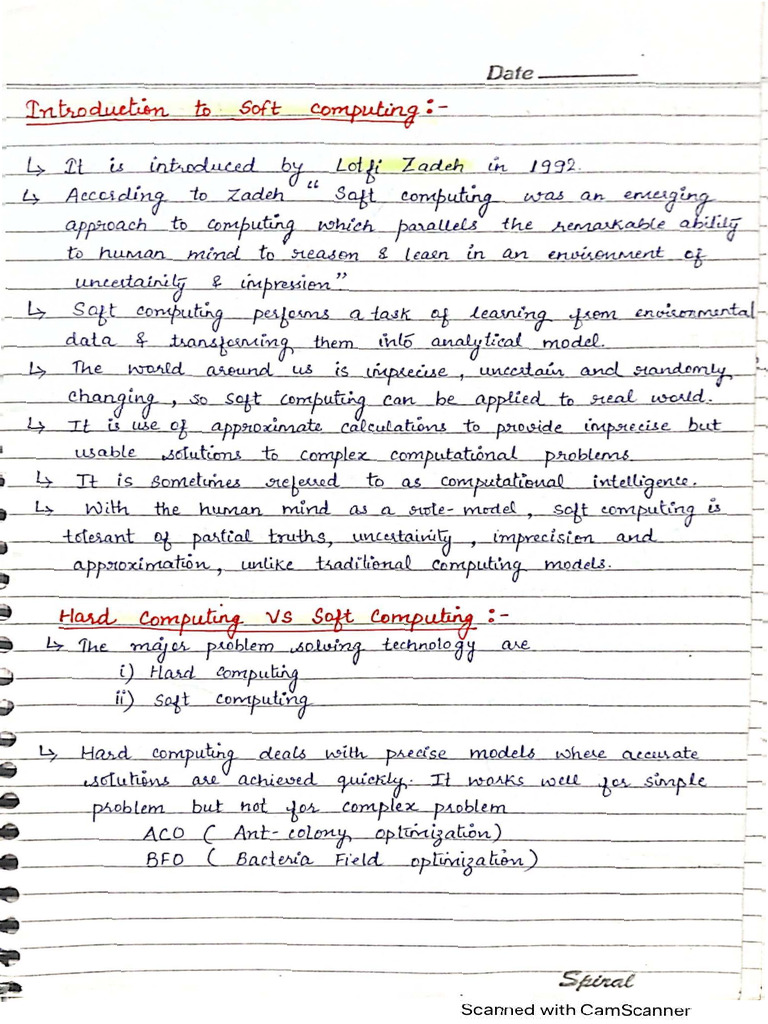 Date
Introduction to Soft Computing :-
↳ It is introduced by Lotfi Zadeh in 1992.
↳ According to Zadeh " Soft computing was an emerging
approach to computing which parallels the remarkable ability
to human mind to reason & learn in an environment of
uncertainity & impression"
↳ Soft computing performs a task of learning from environmental
data & transforming them into analytical model.
↳ The world around us is imprecise, uncertain and randomly
changing, so soft computing can be applied to real world.
↳ It is use of approximate calculations to provide imprecise but
usable solutions to complex computational problems.
↳ It is sometimes referred to as computational intelligence.
↳ With the human mind as a role-model, soft computing is
tolerant of partial truths, uncertainity, imprecision and
approximation, unlike traditional computing models.
Hard Computing VS Soft Computing :-
↳ The major problem solving technology are
i) Hard computing
ii) Soft computing
↳ Hard computing deals with precise models where accurate
solutions are achieved quickly. It works well for simple
problem but not for complex problem
ACO ( Ant-colony optimization)
BFO ( Bacteria Field optimization)
Spiral
Scanned with CamScanner